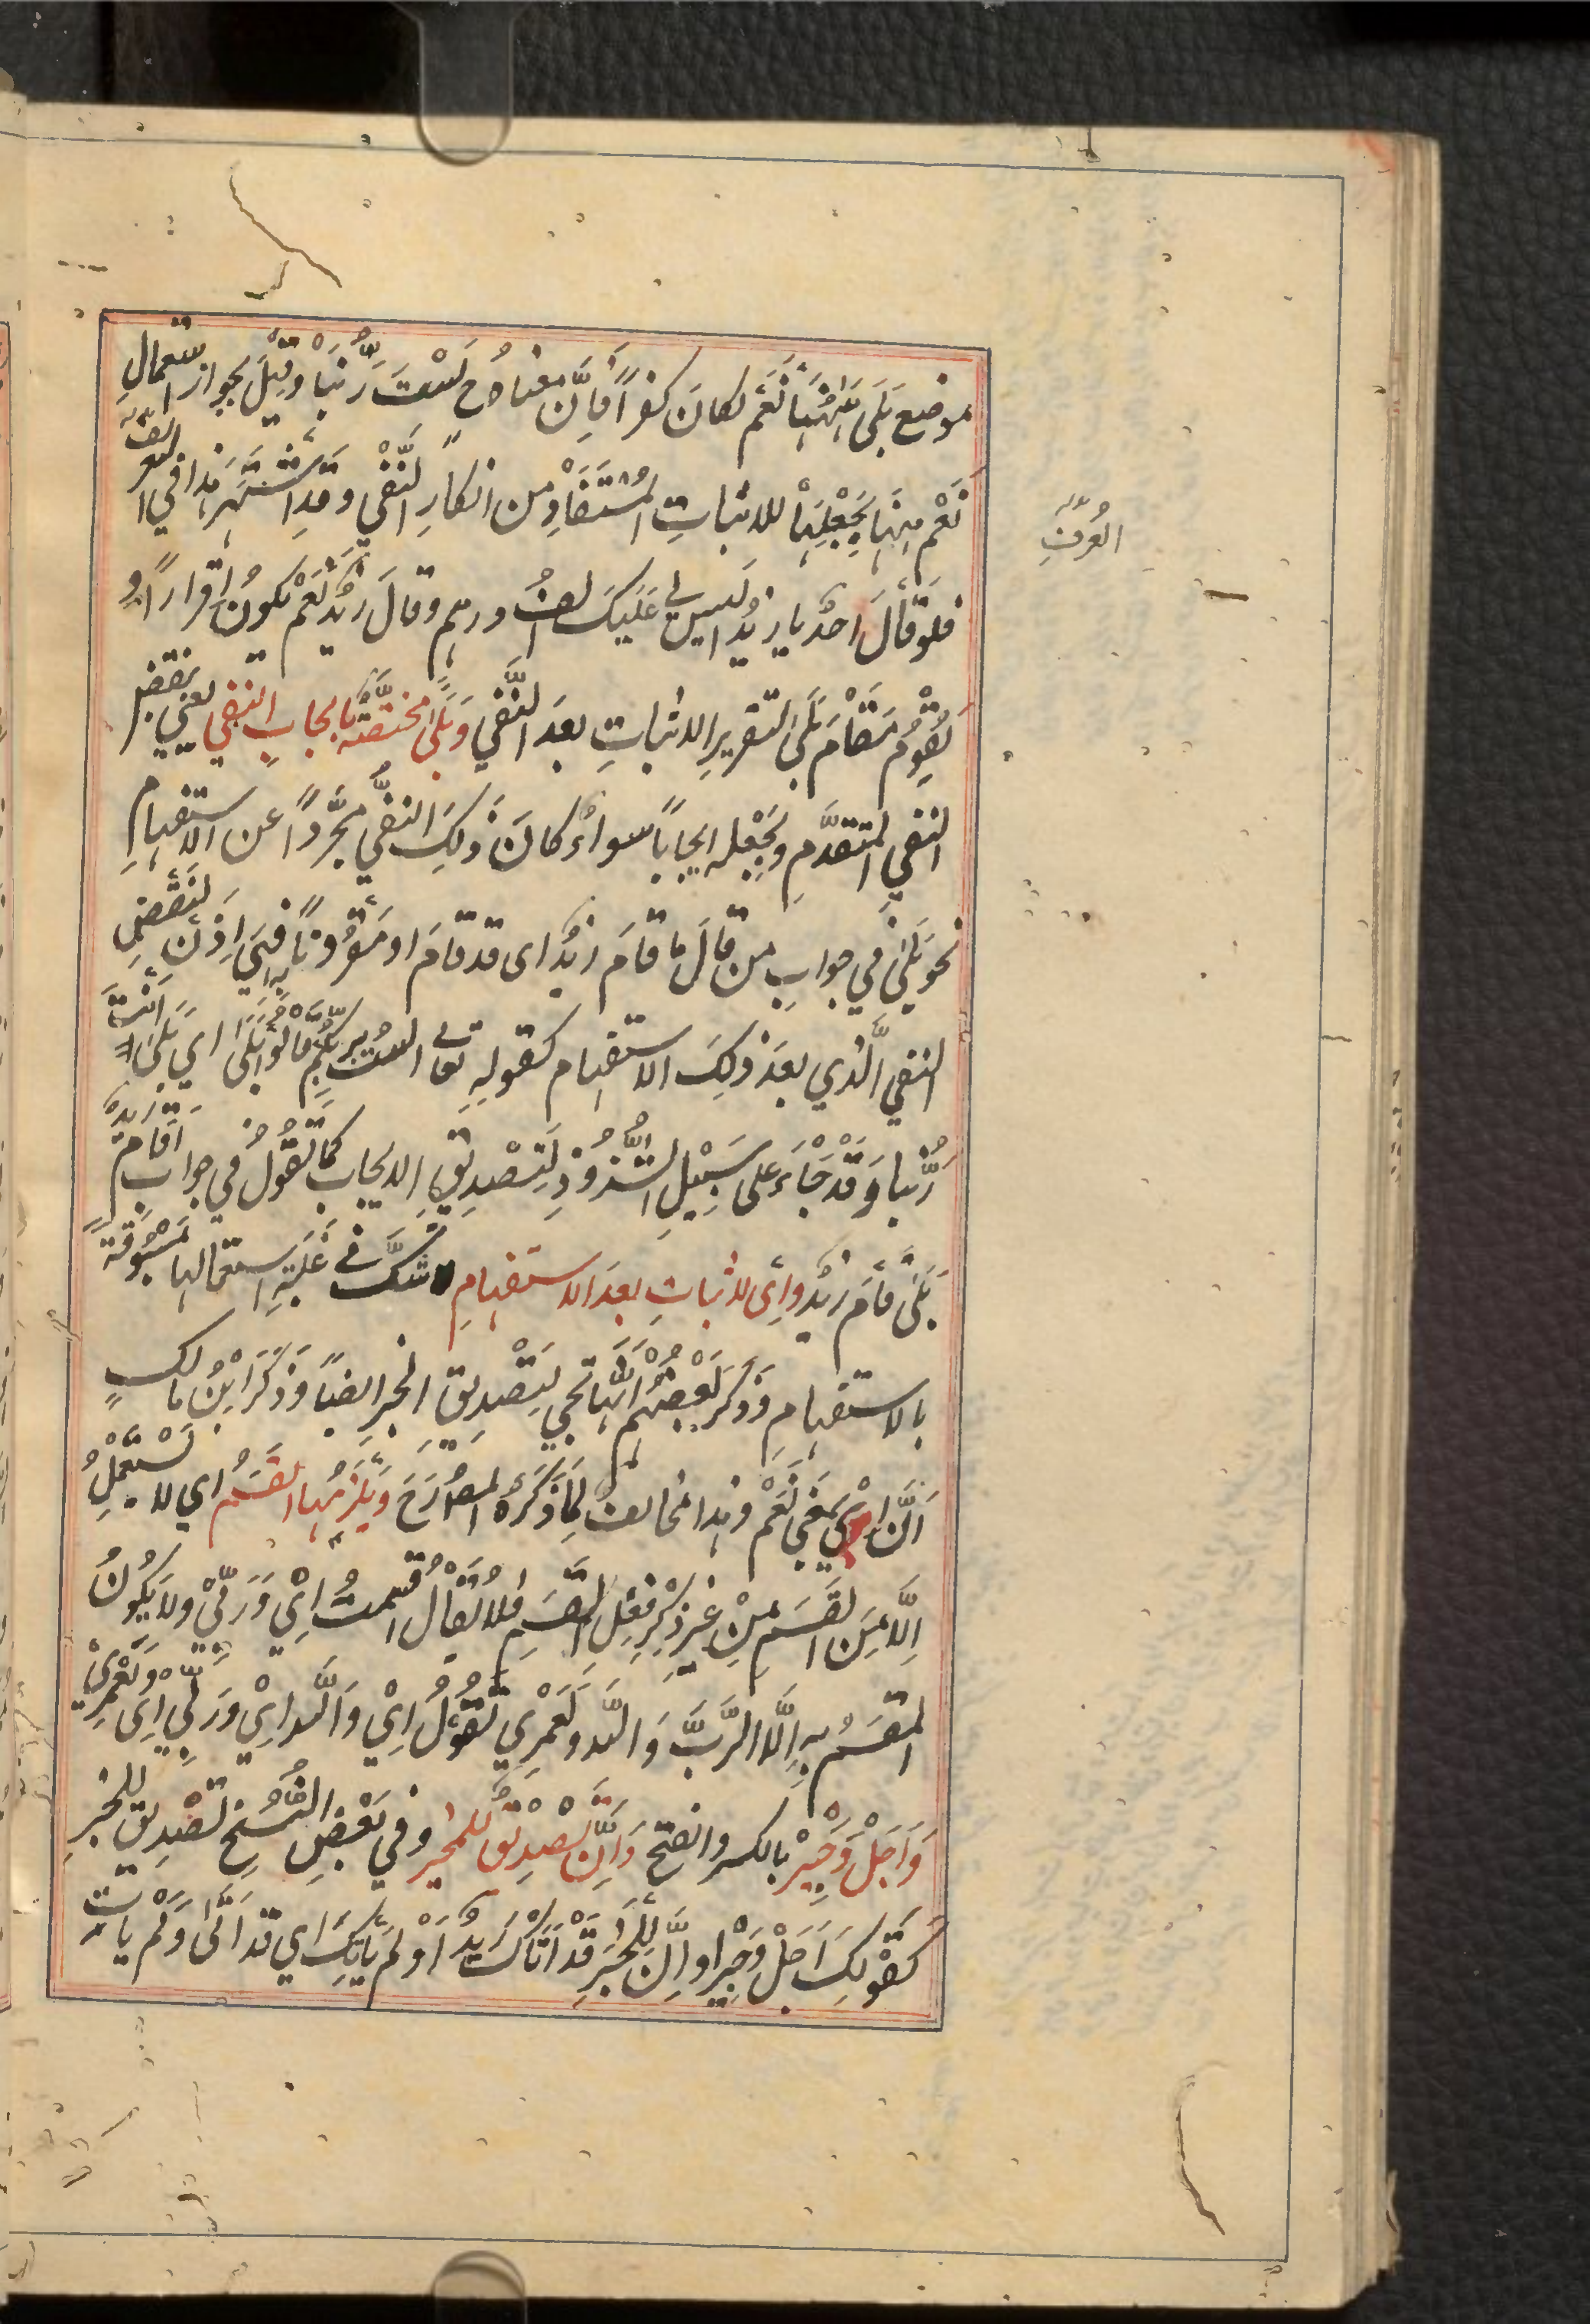 موضع بَلَى هٰهُنَا نَعَم لكانَ كفرًا فاِنَّ معناهُ ح لَسْتَ رَبَّنَا وقِيْلَ يجوز استعمالِ
نَعَمْ هٰهنا بِجَعْلِهَا للاثباتِ المُسْتَفَادِ من انكارِ النَّفْي وقدِ اشْتَهَرَ هذا في العرف
العُرفِ
فلوقَالَ احدٌ يا زيدُ اليس لي عَلَيكَ الفُ درهم وقالَ زيدٌ نَعَمْ يكونُ اقرارًا و
يَقُوْمُ مَقَامَ بَلَى لتقرير الاثباتِ بعدَ النَّفْي وَبَلَى مختصَّةٌ بايجابِ النفي يعني ينقض
النفي المتقدَّمِ ويَجْعله ايجابًا سواءٌ كانَ ذٰلِكَ النفي مجرَّدًا عن الاستفهامِ
نحو بَلَى في جوابِ من قالَ ما قامَ زيدٌ اى قد قامَ او مَقْرُونًا به فهي اِذَنْ لِنَقْضِ
النفي الَّذي بعدَ ذلِكَ الاستفهام كقولِه تعالى الستُ بِرَبِّكُمْ قَالُوْا بَلَى اي بَلَى اَنْتَ
رَبُّنا وَقَدْ جَاءَ على سَبِيْلِ الشُّذُوْذِ لِتَصْدِيْقِ الايجاب كما تَقُوْلُ في جوابِ اَقَامَ زيدٌ
بَلَى قَامَ زيدٌ واِى للاثباتِ بعدَ الاستفهامِ لا شكَّ فى غَلَبَةِ استعمالها مَسْبُوْقَةً
بالاستفهامِ وَذكرَ بَعْضُهُمْ اَنَّهَا تجي لِتَصْدِيقِ الخبر ايضًا وَذَكَرَ ابْنُ مالكٍ
اَنَّ اِيْ بمَعْنى نَعَمْ وهذا مخالفٌ لِمَا ذَكَرَهُ المص رَحَ وَيَلْزَمُها القَسَمُ اي لا تُسْتَعْمَلُ
اِلَّا مَعَ القَسَمِ مِنْ غيْرِ ذكْرِ فِعْلِ القَسَمِ فلا يُقَالُ اقسمتُ اِيْ وَرَبِّيْ ولا يَكُوْنُ
المقسَمُ به اِلَّا الرَّبَّ وَاللّه ولَعَمْرِي تَقُوْلُ اِيْ وَاللّه اِيْ وَرَبِّيْ اِى وَلَعَمْرِيْ
وَاَجَلْ وَجَيْرْ بالكسر والفتح وَاِنَّ تصْدِيْقٌ للمخبِر وفي بَعْضِ النُّسَخِ تصْدِيق للخبر
كقَوْلِكَ اَجَلْ وَجَيْر او اِنَّ لِلمُخْبِرِ قَدْ اَتَاكَ زَيْدٌ اَوْ لَمْ يَاْتِكَ اي قد اَتَى وَلَمْ يَاْتِ